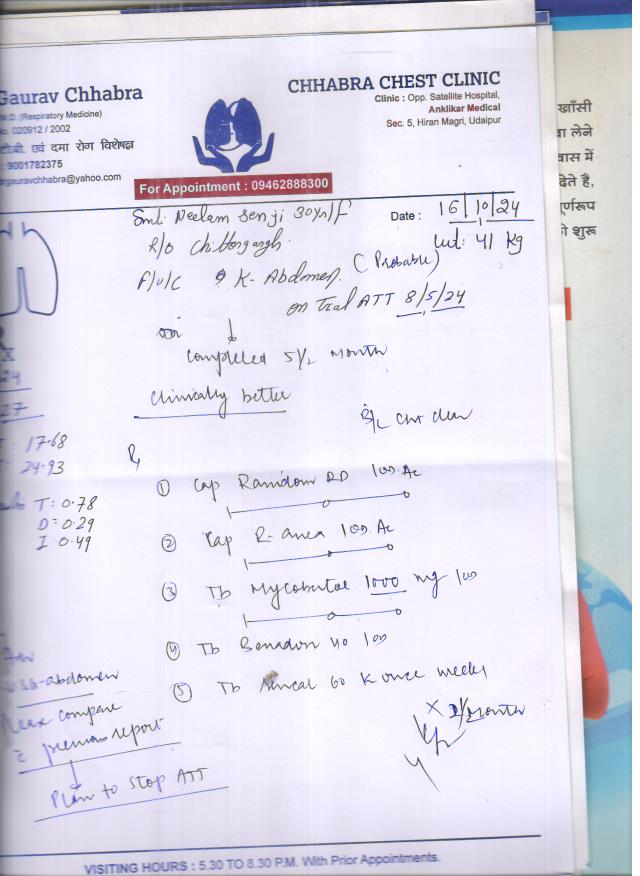 Gaurav Chhabra
M.D. (Respiratory Medicine)
No. 020912 / 2002
टी.बी. एवं दमा रोग विशेषज्ञ
: 9001782375
drgauravchhabra@yahoo.com
CHHABRA CHEST CLINIC
Clinic : Opp. Satellite Hospital,
Anklikar Medical
Sec. 5, Hiran Magri, Udaipur
For Appointment : 09462888300
Smt. Neelam 30yr/F
Date : 16/10/24
R/o
wt: 41 kg
F/U/C K-Abdomen (Probable)
on Trial ATT 8/5/24
Completed 5 1/2 month
Clinically better
B/L Chest clear
24
27
: 17.68
: 24.93
T: 0.78
D: 0.29
I: 0.49
Rx
① Cap RD 1 OD Ac
② Cap 1 OD Ac
③ Tb Mycobutol 1000 mg 1 OD
④ Tb Benadon 40 1 OD
⑤ Tb 60 K once weekly
month
USG-abdomen
compare
c previous report
Plan to Stop ATT
VISITING HOURS : 5.30 TO 8.30 P.M. With Prior Appointments.
खाँसी
लेने
में
देते है,
शुरू